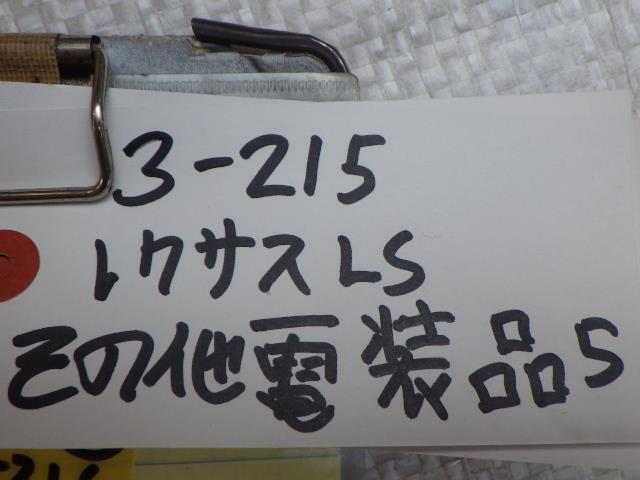 3-215
レクサスLS
その他電装品5
-216